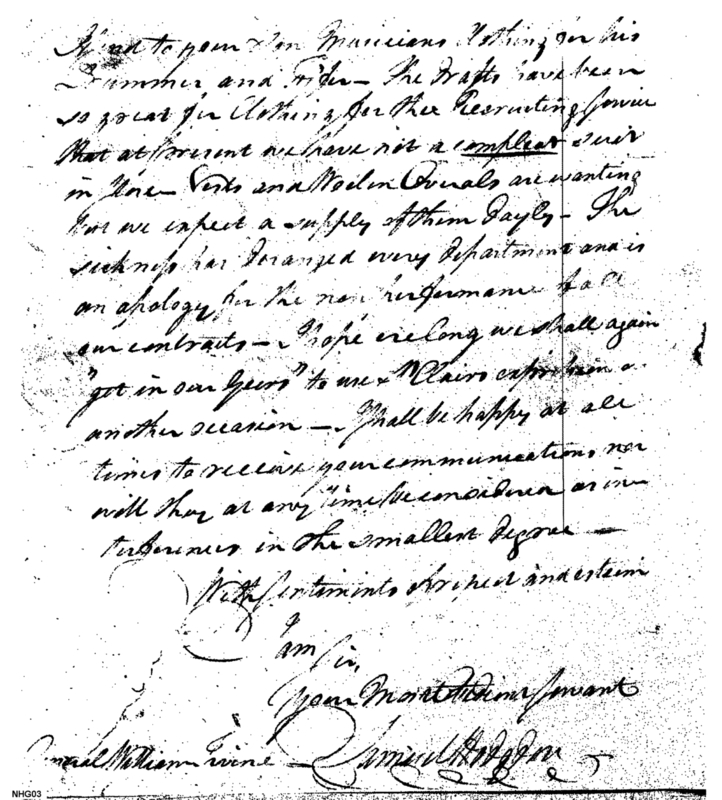 to your Son Musicians Clothing for his
Drummer and Fifer — The Drafts have been
so great for Clothing for the Recruiting Service
that at present we have not a compleat suit
in Store — Vests and Woolen Overals are wanting
but we expect a supply of them dayly — The
sickness has deranged every department and is
an apology for the non performance of all
our contracts — I hope ere long we shall again
"get in our Geers" to use St Clairs expression on
another occasion — I shall be happy at all
times to receive your communications, nor
will they at any time be considered as in=
terferences in the smallest degree —
With sentiments of respect and esteem
I
am Sir,
your Most Obedient Servant
General William Irvine Samuel Hodgdon
NHG03